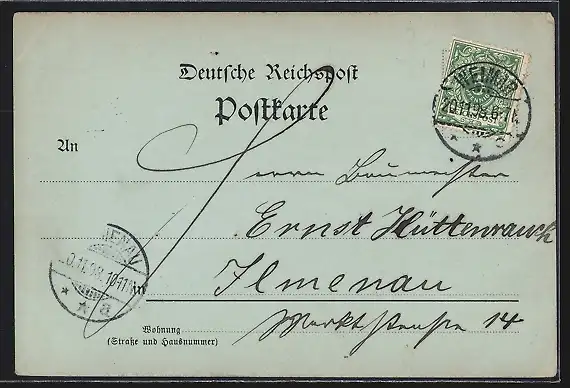 Deutsche Reichspost
Postkarte
WEIMAR
20.11.98.6-7N.
An
Herrn Baumeister
Ernst Hüttenrauch
Ilmenau
in
Marktstrasse 14
ILMENAU
20.11.98.10-11N.
* * a
Wohnung
(Straße und Hausnummer)